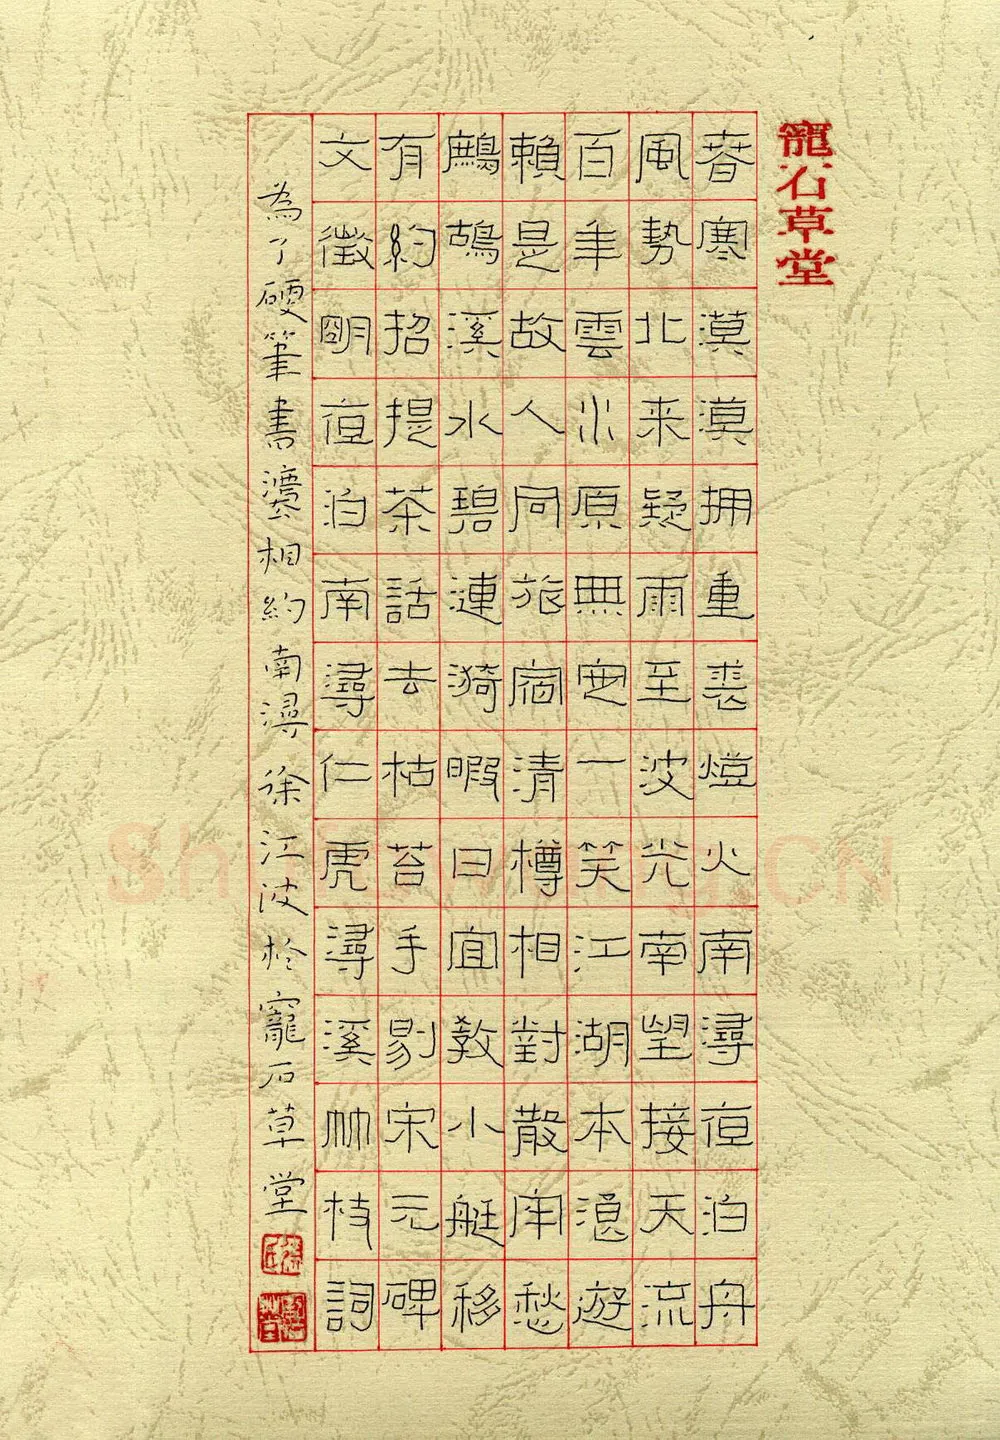 寵石草堂
春寒漠漠拥重裘燈火南潯夜泊舟
風勢北来疑雨至波光南望接天流
百年雲水原無定一笑江湖本浪遊
賴是故人同旅宿清樽相對散閑愁
鷓鴣溪水碧連漪暇日宜教小艇移
有約招提茶話去枯苔手剔宋元碑
文徵明夜泊南潯仁虎潯溪竹枝詞
為了硬筆書灋相約南潯徐江波於寵石草堂